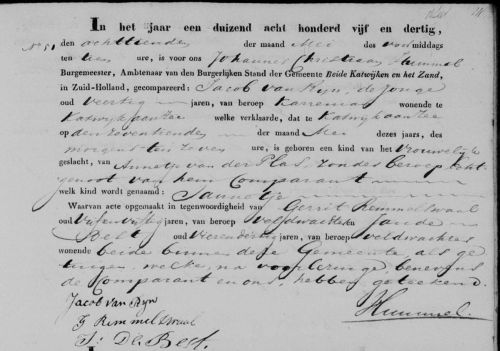 In het jaar een duizend acht honderd vijf en dertig,
No 51 den achttienden der maand Mei des voormiddags
ten tien ure, is voor ons Johannes Christiaan Hummel
Burgemeester, Ambtenaar van den Burgerlijken Stand der Gemeente Beide Katwijken en het Zand,
in Zuid-Holland, gecompareerd: Jacob van Rijn, de jonge
oud veertig jaren, van beroep Karreman wonende te
Katwijk aan Zee welke verklaarde, dat te Katwijk aan Zee
op den zeventienden der maand Mei dezes jaars, des
morgens ten zeven ure, is geboren een kind van het vrouwelijk
geslacht, van Annetje van der Plas, zonder beroep Echt-
genoot van hem Comparant
welk kind wordt genaamd: Jannetje
Waarvan acte opgemaakt in tegenwoordigheid van Gerrit Remmelswaal
oud vijfenvijftig jaren, van beroep veldwachter
Best oud vierendertig jaren, van beroep veldwachter
wonende beide binnen deze Gemeente als ge-
tuigen, welke, na voorlezinge benevens
de Comparant en ons hebben geteekend.
Jacob van Ryn
G Remmelswaal
J: De Best.
Hummel